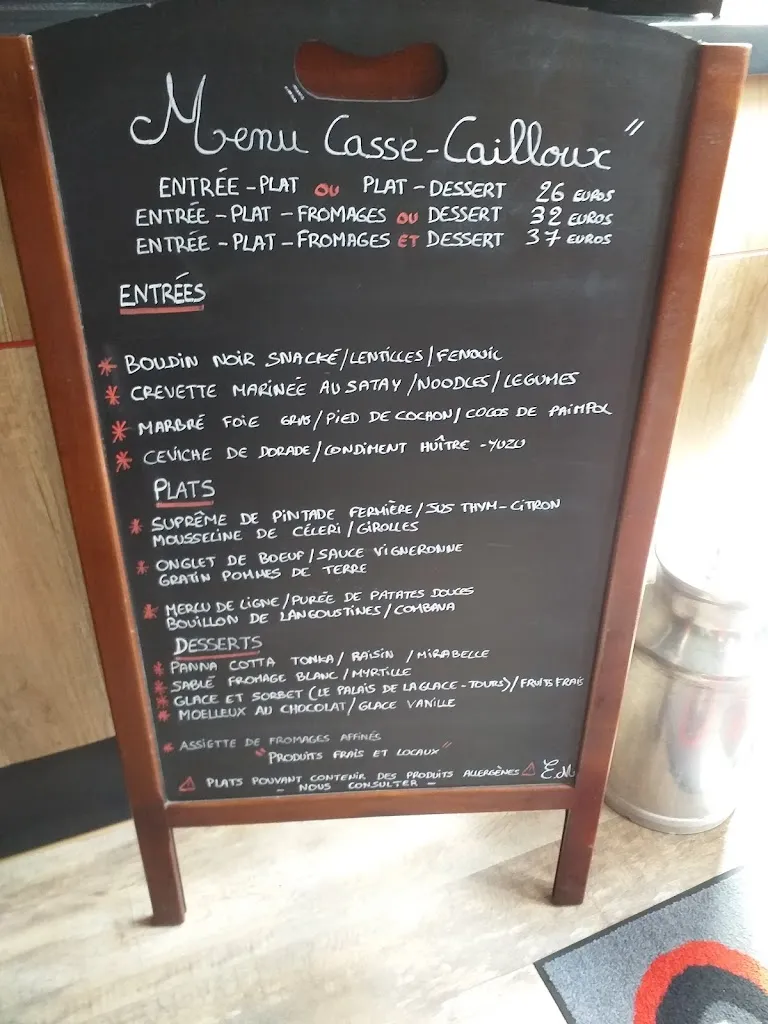 "Menu Casse-Cailloux"
ENTRÉE - PLAT OU PLAT - DESSERT 26 EUROS
ENTRÉE - PLAT - FROMAGES OU DESSERT 32 EUROS
ENTRÉE - PLAT - FROMAGES ET DESSERT 37 EUROS
ENTRÉES
* BOUDIN NOIR SNACKÉ/LENTILLES/FENOUIL
* CREVETTE MARINÉE AU SATAY/NOODLES/LEGUMES
* MARBRÉ FOIE GRAS/PIED DE COCHON/COCOS DE PAIMPOL
* CEVICHE DE DORADE/CONDIMENT HUÎTRE - YUZU
PLATS
* SUPRÊME DE PINTADE FERMIÈRE/JUS THYM-CITRON
MOUSSELINE DE CÉLERI/GIROLLES
* ONGLET DE BOEUF/SAUCE VIGNERONNE
GRATIN POMMES DE TERRE
* MERLU DE LIGNE/PURÉE DE PATATES DOUCES
BOUILLON DE LANGOUSTINES/COMBAVA
DESSERTS
* PANNA COTTA TONKA/RAISIN/MIRABELLE
* SABLÉ FROMAGE BLANC/MYRTILLE
* GLACE ET SORBET (LE PALAIS DE LA GLACE - TOURS)/FRUITS FRAIS
* MOELLEUX AU CHOCOLAT/GLACE VANILLE
* ASSIETTE DE FROMAGES AFFINÉS
"PRODUITS FRAIS ET LOCAUX"
⚠ PLATS POUVANT CONTENIR DES PRODUITS ALLERGÈNES ⚠ E.M
- NOUS CONSULTER -